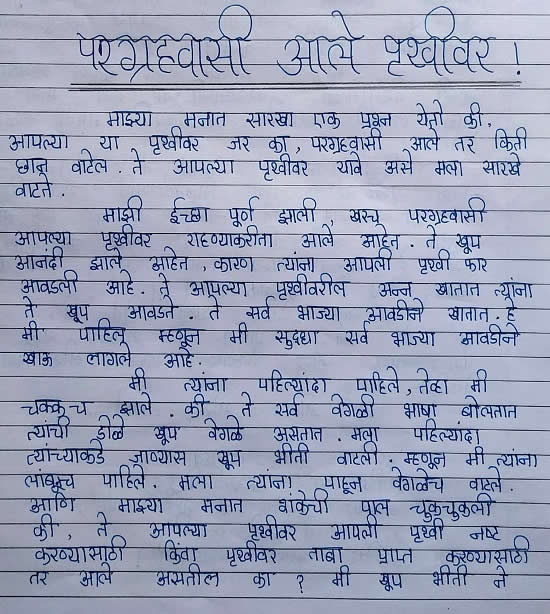 परग्रहवासी आले पृथ्वीवर !
माझ्या मनात सारखा एक प्रश्न येतो की,
आपल्या या पृथ्वीवर जर का, परग्रहवासी आले तर किती
छान वाटेल. ते आपल्या पृथ्वीवर यावे असे मला सारखे
वाटते.
माझी ईच्छा पूर्ण झाली, खरच परग्रहवासी
आपल्या पृथ्वीवर राहण्याकरीता आले आहेत. ते खूप
आनंदी झाले आहेत, कारण त्यांना आपली पृथ्वी फार
आवडली आहे. ते आपल्या पृथ्वीवरील अन्न खातात त्यांना
ते खूप आवडते. ते सर्व भाज्या आवडीने खातात. हे
मी पाहिल म्हणून मी सुद्धा सर्व भाज्या आवडीने
खाऊ लागले आहे.
मी त्यांना पहिल्यांदा पाहिले, तेव्हा मी
चक्कच झाले. की ते सर्व वेगळी भाषा बोलतात
त्यांची डोळे खूप वेगळे असतात. मला पहिल्यांदा
त्यांच्याकडे जाण्यास खूप भीती वाटली. म्हणून मी त्यांना
लांबूनच पाहिले. मला त्यांना पाहून वेगळेच वाटले.
आणि माझ्या मनात शंकेची पाल चुकचुकली
की, ते आपल्या पृथ्वीवर आपली पृथ्वी नष्ट
करण्यासाठी किंवा पृथ्वीवर ताबा प्राप्त करण्यासाठी
तर आले असतील का ? मी खूप भीती ने